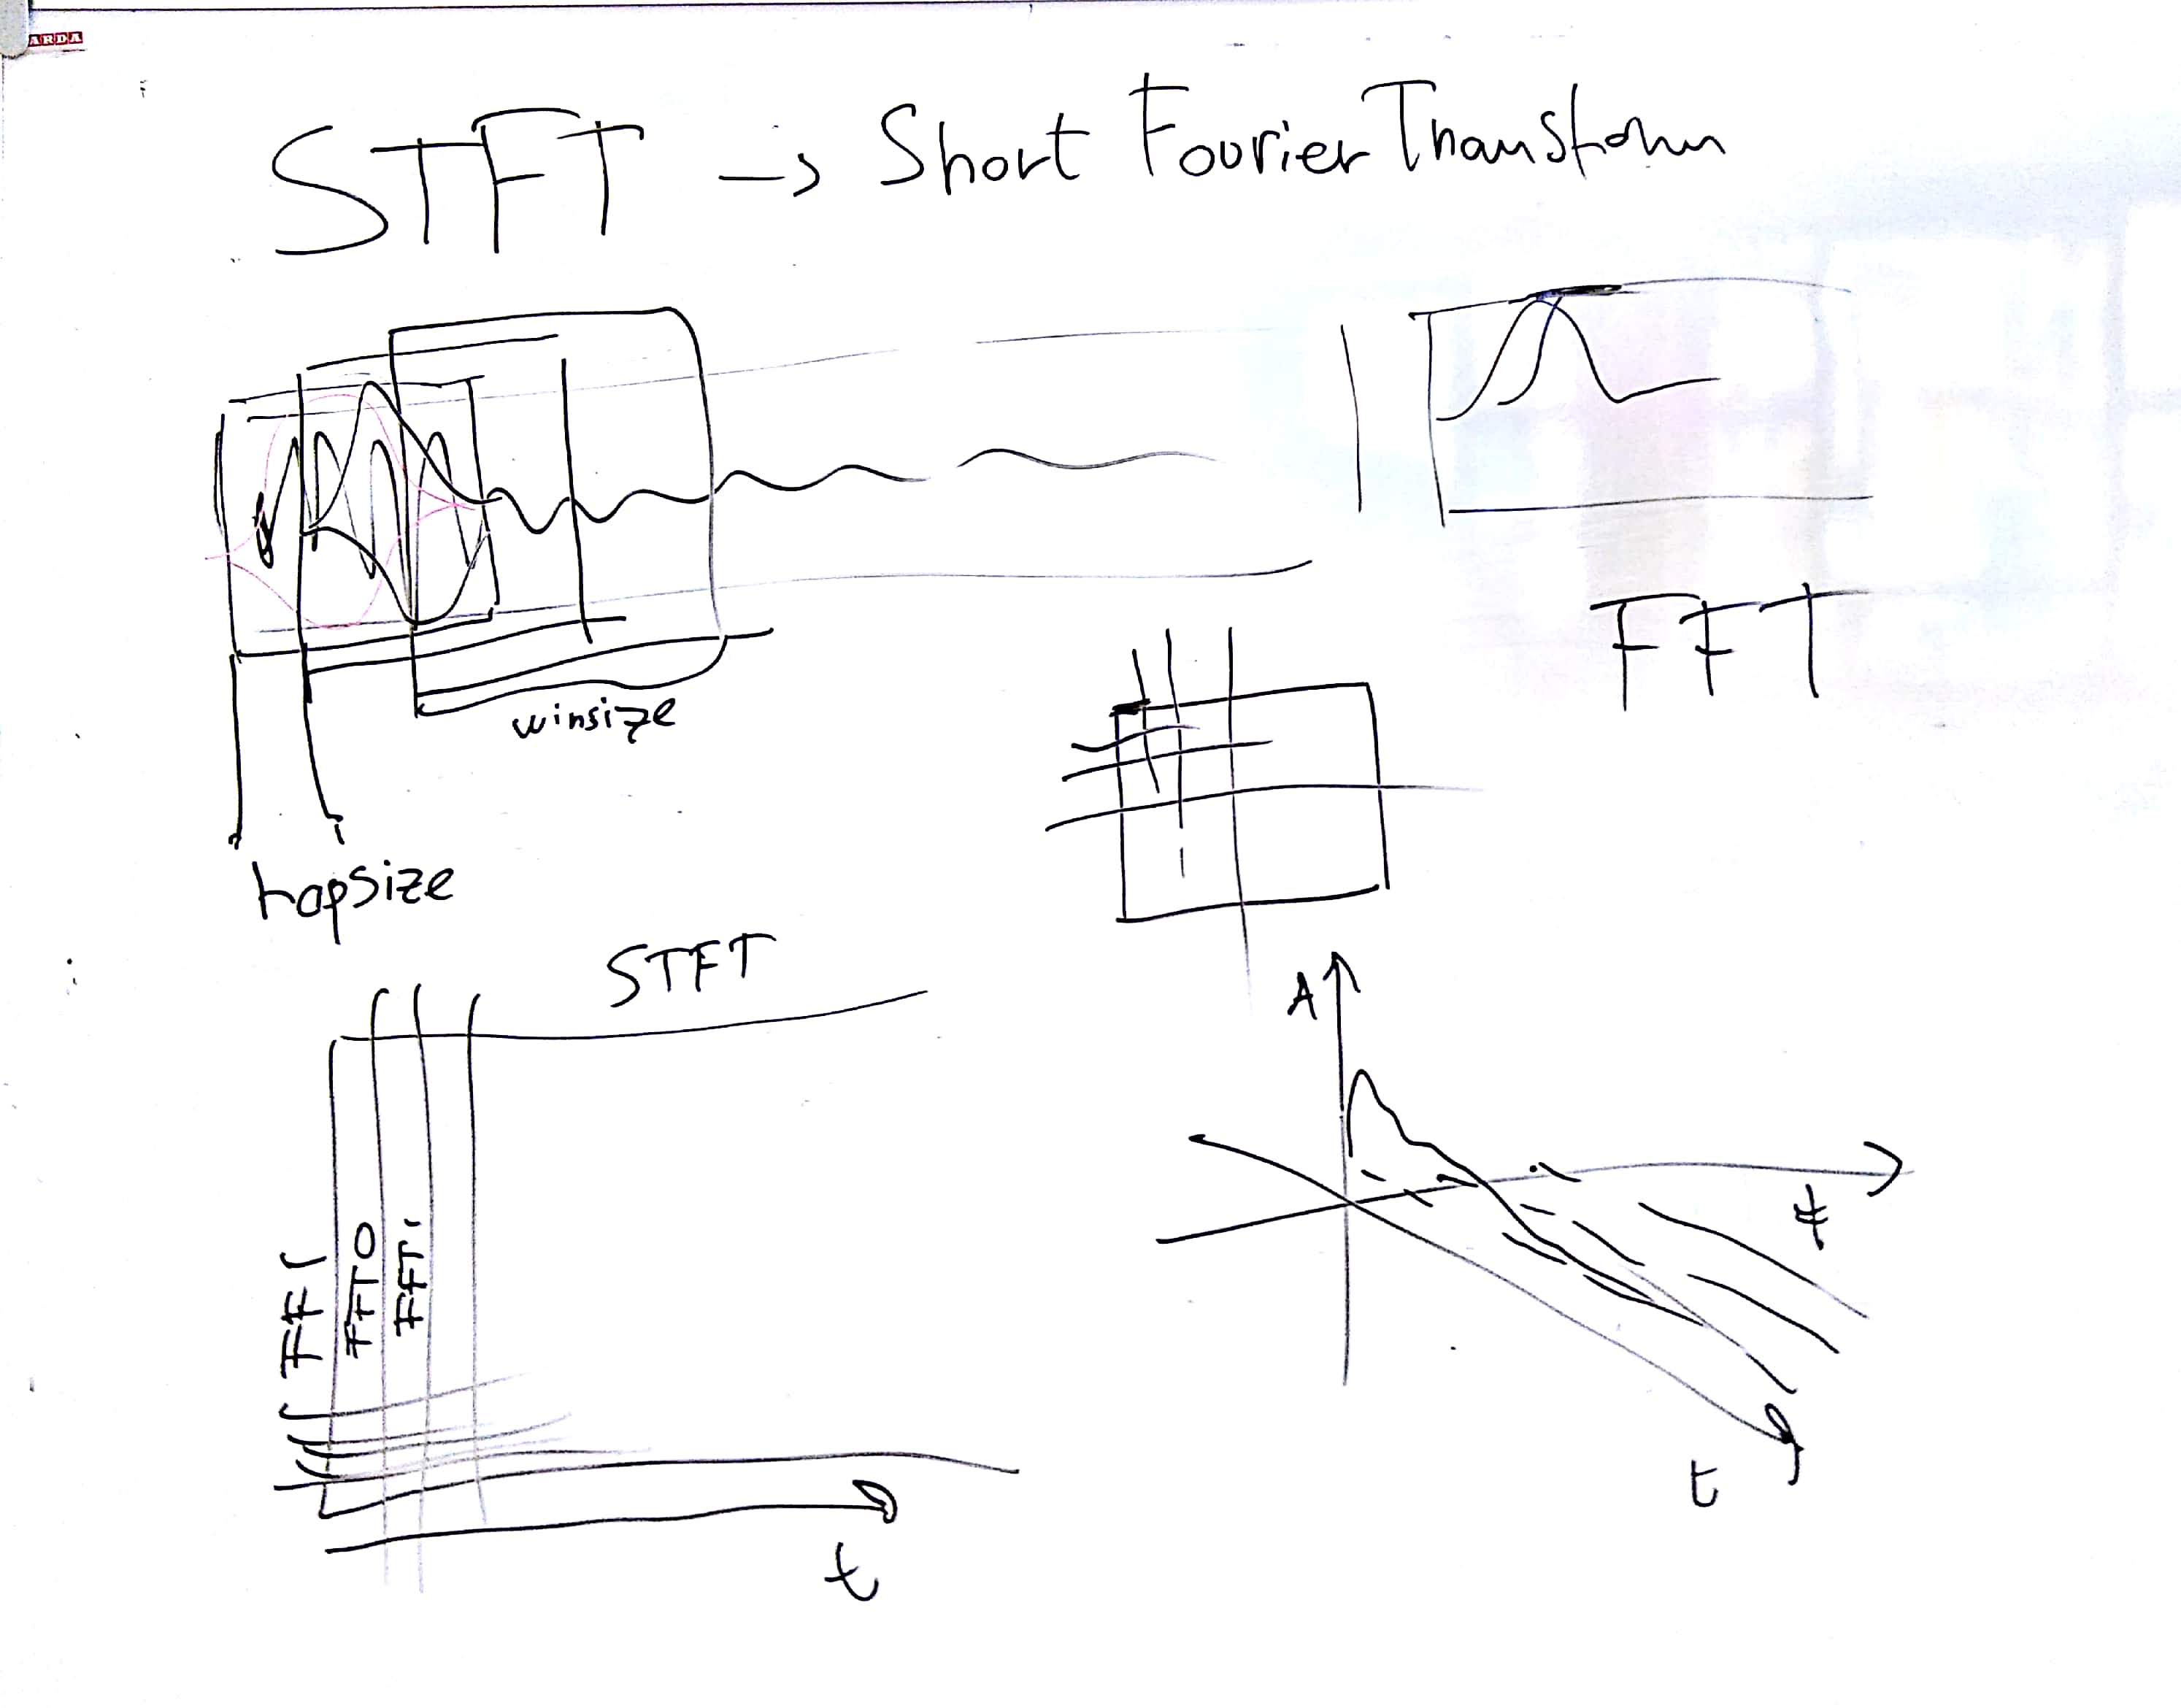 ARDA
STFT -> Short Fourier Transform
FFT
winsize
hopsize
STFT
A
FFT
FFT0
FFT1
f
t
t